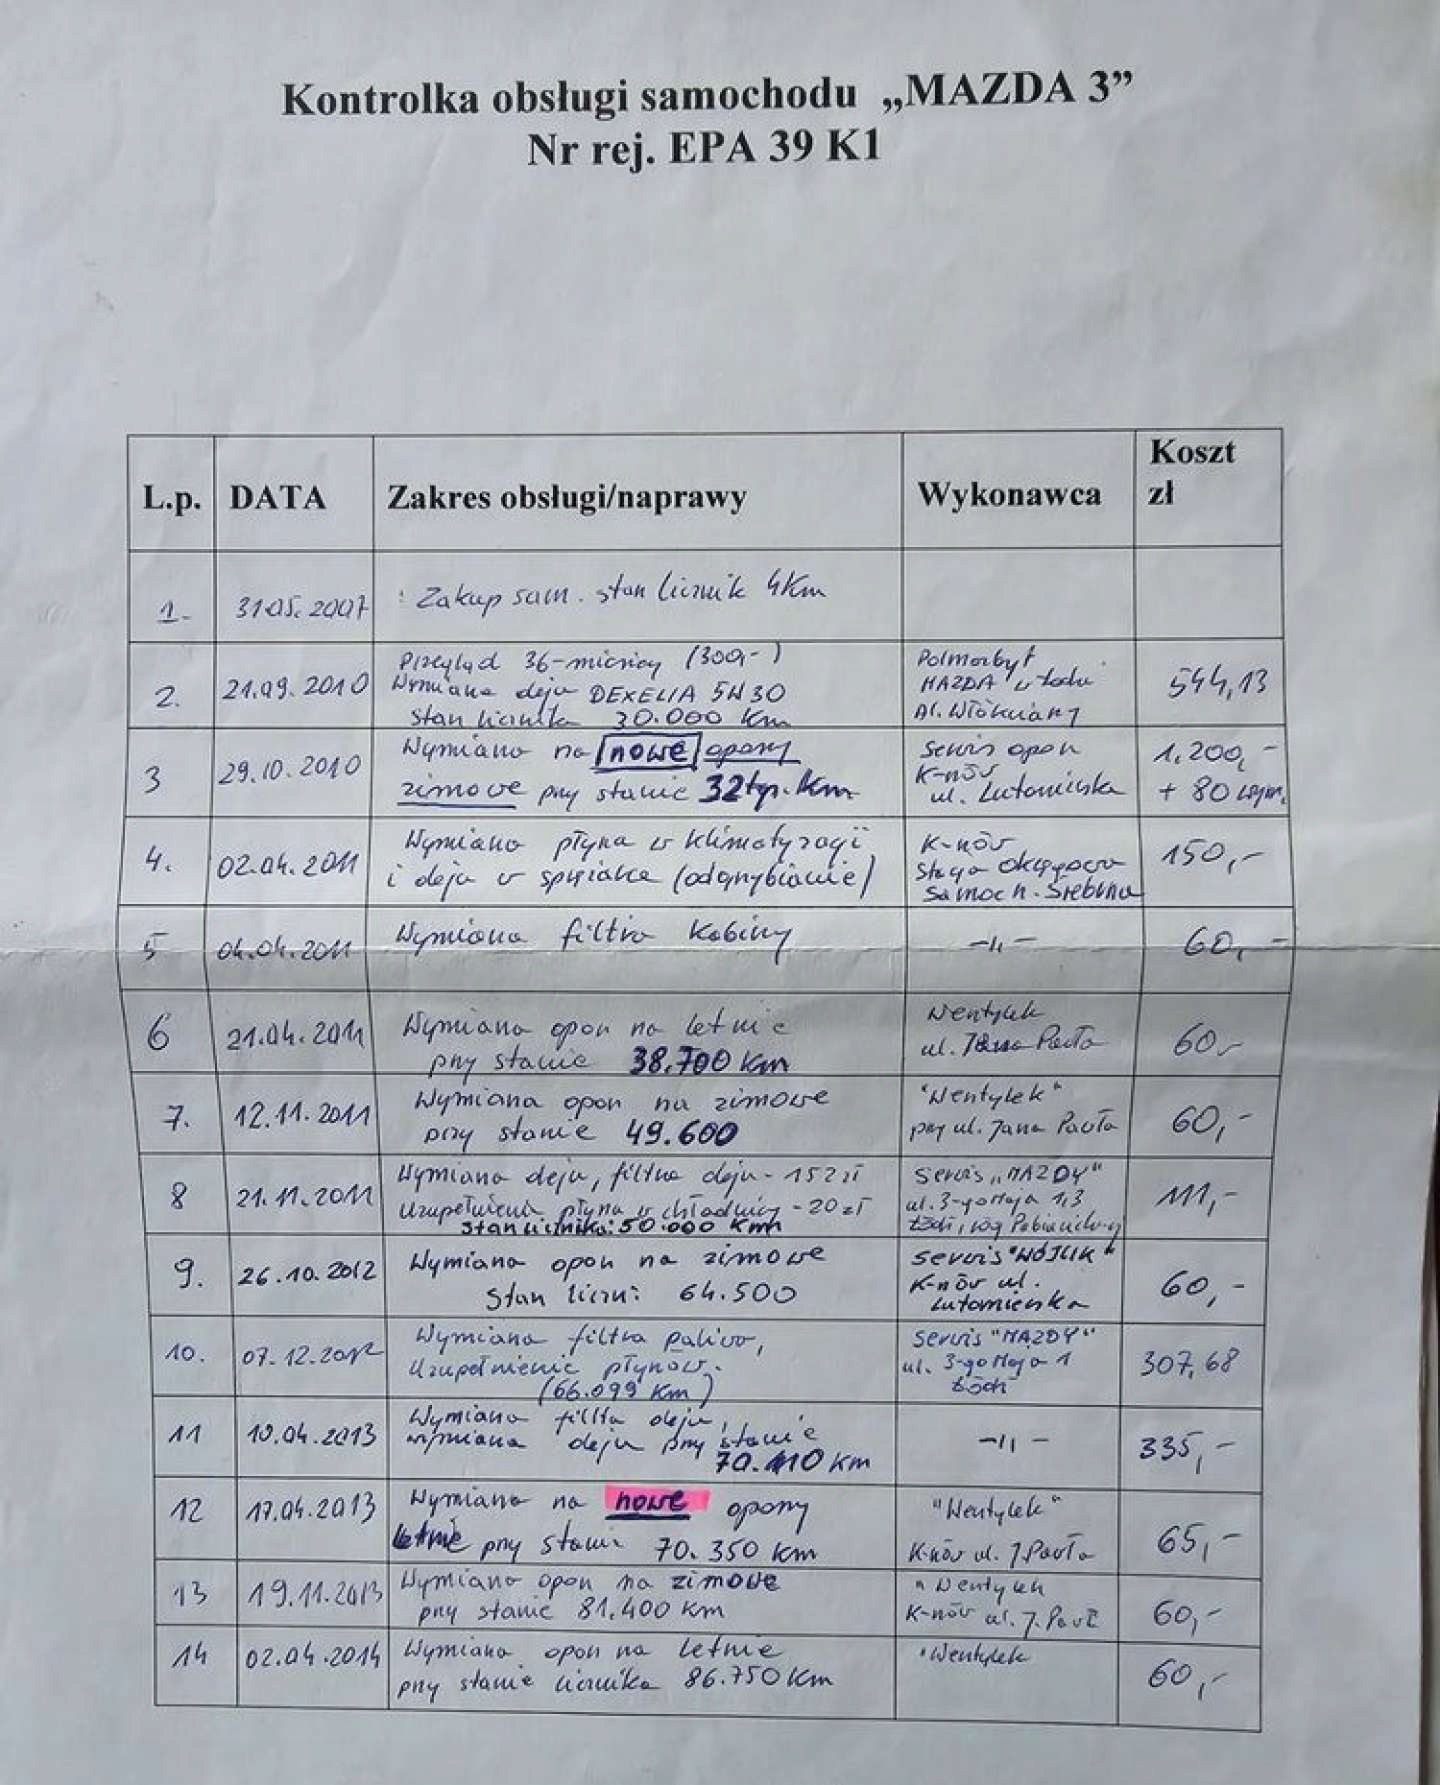 Kontrolka obsługi samochodu „MAZDA 3”
Nr rej. EPA 39 K1
L.p. DATA Zakres obsługi/naprawy Wykonawca Koszt zł
1. 31.05.2007 Zakup sam. stan licznik 4Km
2. 21.09.2010 Przegląd 36-miesięcy (300,-)
Wymiana oleju DEXELIA 5W30
Stan licznika 30.000 Km
Polmozbyt
MAZDA w Łodzi
Al. Włókniarzy
544,13
3 29.10.2010 Wymiana na nowe opony
zimowe przy stanie 32 tys. Km
Serwis opon
K-nów
ul. Lutomierska
1.200,-
+ 80 wym.
4. 02.04.2011 Wymiana płynu w klimatyzacji
i oleju w sprężarce (odgrzybianie)
K-nów
Stacja Okręgowa
Samoch. Srebrna
150,-
5 04.04.2011 Wymiana filtra kabiny -〃- 60,-
6 21.04.2011 Wymiana opon na letnie
przy stanie 38.700 Km
Wentylek
ul. Jana Pawła
60,-
7. 12.11.2011 Wymiana opon na zimowe
przy stanie 49.600
"Wentylek"
przy ul. Jana Pawła
60,-
8 21.11.2011 Wymiana oleju, filtra oleju - 152 zł
Uzupełnienie płynu w chłodnicy - 20 zł
Stan licznika: 50.000 Km
Serwis „MAZDY"
ul. 3-go Maja 1/3
Łódź, róg
111,-
9. 26.10.2012 Wymiana opon na zimowe
Stan liczn: 64.500
Serwis "WÓJCIK"
K-nów ul.
Lutomierska
60,-
10. 07.12.2012 Wymiana filtra paliwa,
Uzupełnienie płynów.
(66.099 Km)
Serwis "MAZDY"
ul. 3-go Maja 1
Łódź
307,68
11 10.04.2013 Wymiana filtra oleju,
wymiana oleju przy stanie
70.110 Km
-〃-
335,-
12 17.04.2013 Wymiana na nowe opony
letnie przy stanie 70.350 Km
"Wentylek"
K-nów ul. J. Pawła
65,-
13 19.11.2013 Wymiana opon na zimowe
przy stanie 81.400 Km
"Wentylek
K-nów ul. J. Pawł
60,-
14 02.04.2014 Wymiana opon na letnie
przy stanie licznika 86.750 Km
"Wentylek
60,-